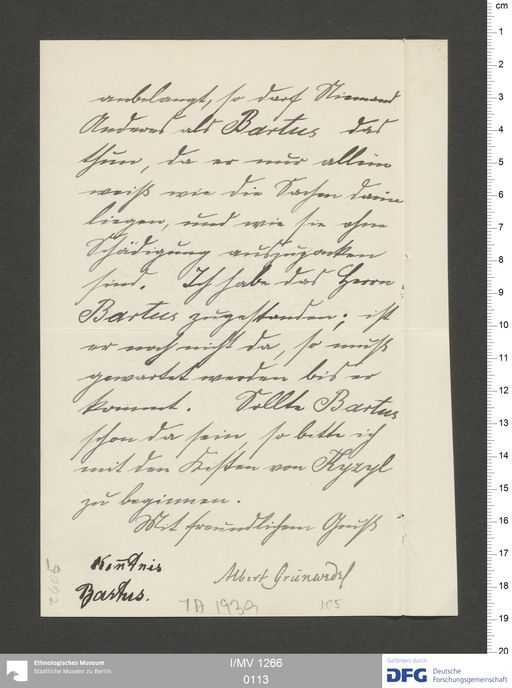 anbelangt, so darf Niemand
Anderes als Bartus das
thun, da er nur allein
weiß wie die Sachen darin
liegen, und wie sie ohne
Schädigung auszupacken
sind. Ich habe das Herrn
Bartus zugestanden; ist
er noch nicht da, so muß
gewartet werden bis er
kommt. Sollte Bartus
schon da sein, so bitte ich
mit den Kisten von Kyzyl
zu beginnen.
Mit freundlichem Gruß
Albert Grünwedel
Kenntnis
Bartus.
TA 1939
105
2005
cm
1
2
3
4
5
6
7
8
9
10
11
12
13
14
15
16
17
18
19
20
Ethnologisches Museum
Staatliche Museen zu Berlin
I/MV 1266
0113
Gefördert durch
DFG Deutsche
Forschungsgemeinschaft